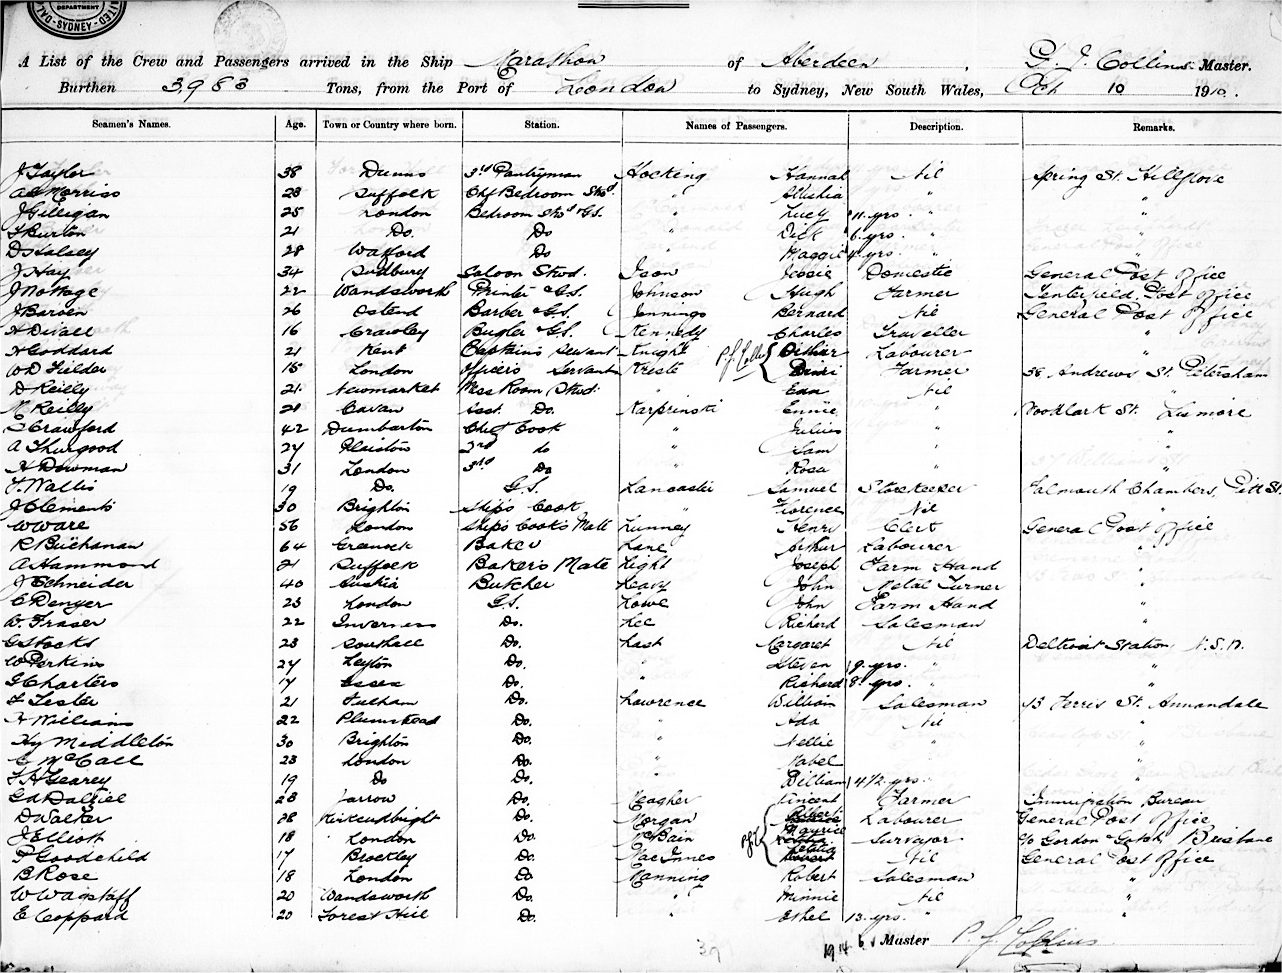 DEPARTMENT
SYDNEY
A List of the Crew and Passengers arrived in the Ship Marathon of Aberdeen, P. J. Collins Master.
Burthen 3983 Tons, from the Port of London to Sydney, New South Wales, Oct 10 1910.
Seamen's Names. Age. Town or Country where born. Station. Names of Passengers. Description. Remarks.
J Taylor 38 Dunns 3rd Pantryman Hocking Hannah Nil Spring St. Hillgrove
A G Morriss 23 Suffolk Chf Bedroom Stwd. " " "
J Gilligan 25 London Bedroom Stwd & G.S. " Lucy 11 yrs. " "
Burton 21 Do. Do " Dick 6 yrs. " "
D Halsey 28 Watford Do " Maggie 4 yrs. " "
J Hay 34 Sudbury Saloon Stwd. Ison Jessie Domestic General Post Office
J Nottage 22 Wandsworth Printer & G.S. Johnson Hugh Farmer Tenterfield, Post Office
J 26 Ostend Barber & G.S. Jennings Bernard Nil General Post Office
H Divall 16 Crawley Bugler & G.S. Kennedy Charles Traveller "
H Goddard 21 Kent Captain's Servant Knight Arthur Labourer "
W D Fielder 15 London Officers Servant Farmer 38 Andrews St. Petersham
D Reilly 21 Newmarket Mess Room Stwd. " Eda Nil
M Reilly 21 Cavan Asst. Do. Karprinski " Woodlark St. Lismore
Crawford 42 Dumbarton Chef Cook " Julius " "
A Thurgood 24 Plaistow 2nd do " Sam " "
H Dowman 31 London 3rd Do " Rosa " "
Wallis 19 Do. G.S. Lancaster Samuel Storekeeper Falmouth Chambers, Pitt St.
J Clements 30 Brighton Ship's Cook " Florence Nil "
W Ware 56 London Ship's Cook's Mate Lunney Henry Clerk General Post Office
R Buchanan 64 Greenock Baker Lane Arthur Labourer "
A Hammond 21 Suffolk Baker's Mate Light Joseph Farm Hand "
J Schneider 40 Austria Butcher Leavy John Metal Turner "
C Denyer 23 London G.S. Lowe John Farm Hand "
W. Fraser 22 Inverness Do. Lee Richard Salesman "
G Stocks 23 Southall Do. Last Margaret Nil Station, N.S.W.
W Perkins 24 Leyton Do. " Steven 9 yrs. " "
G Charters 17 Essex Do. " Richard 8 yrs. "
Lester 21 Fulham Do. Lawrence William Salesman 13 Ferris St. Annandale
H Williams 22 Plumstead Do. " Ada Nil "
Hy Middleton 30 Brighton Do. " Nellie " "
McCall 23 London Do. " Mabel "
Gearey 19 Do Do. " William 4 1/2 yrs. "
G A Dalziel 28 Jarrow Do. Meagher Vincent Farmer Immigration Bureau
D Walker 28 Kirkcudbright Do. Morgan Albert Labourer General Post Office
J Elliott 18 London Do. McBain Maurice Surveyor c/o Gordon & Gotch, Brisbane
P Goodchild 17 Brockley Do. MacInnes Letitia Nil General Post Office
B Rose 18 London Do Manning Robert Salesman "
W Wagstaff 20 Wandsworth Do. " Minnie Nil "
E Coppard 20 Forest Hill Do. " Ethel 13 yrs. " "
Master P. J. Collins